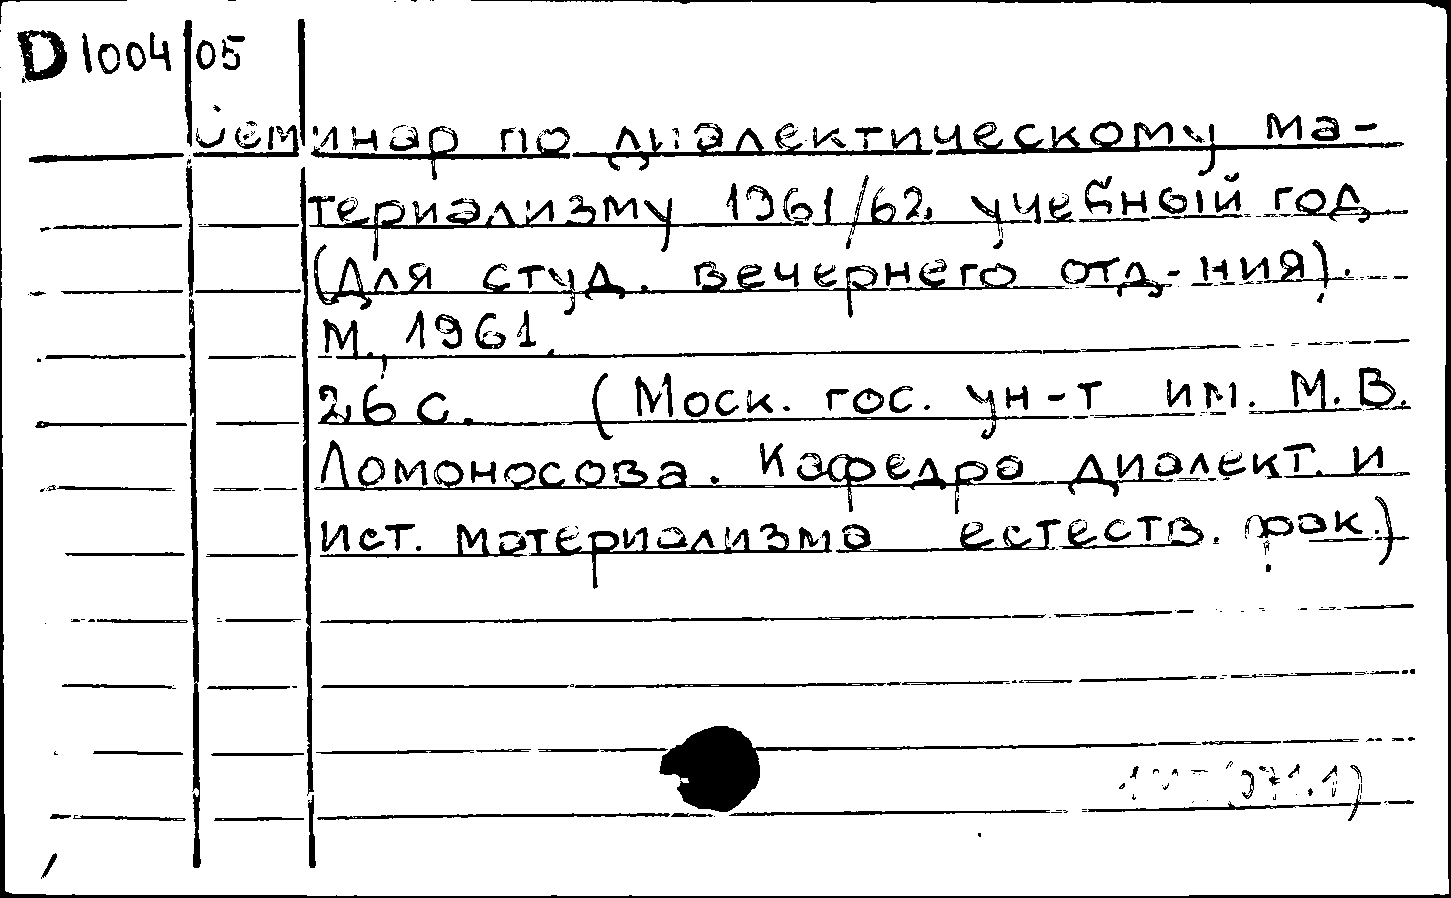 D 1004/05
Семинар по диалектическому ма-
териализму 1961/62 учебный год
(Для студ. вечернего отд-ния).
М., 1961.
26 с. (Моск. гос. ун-т им. М.В.
Ломоносова. Кафедра диалект. и
ист. материализма естеств. фак.)